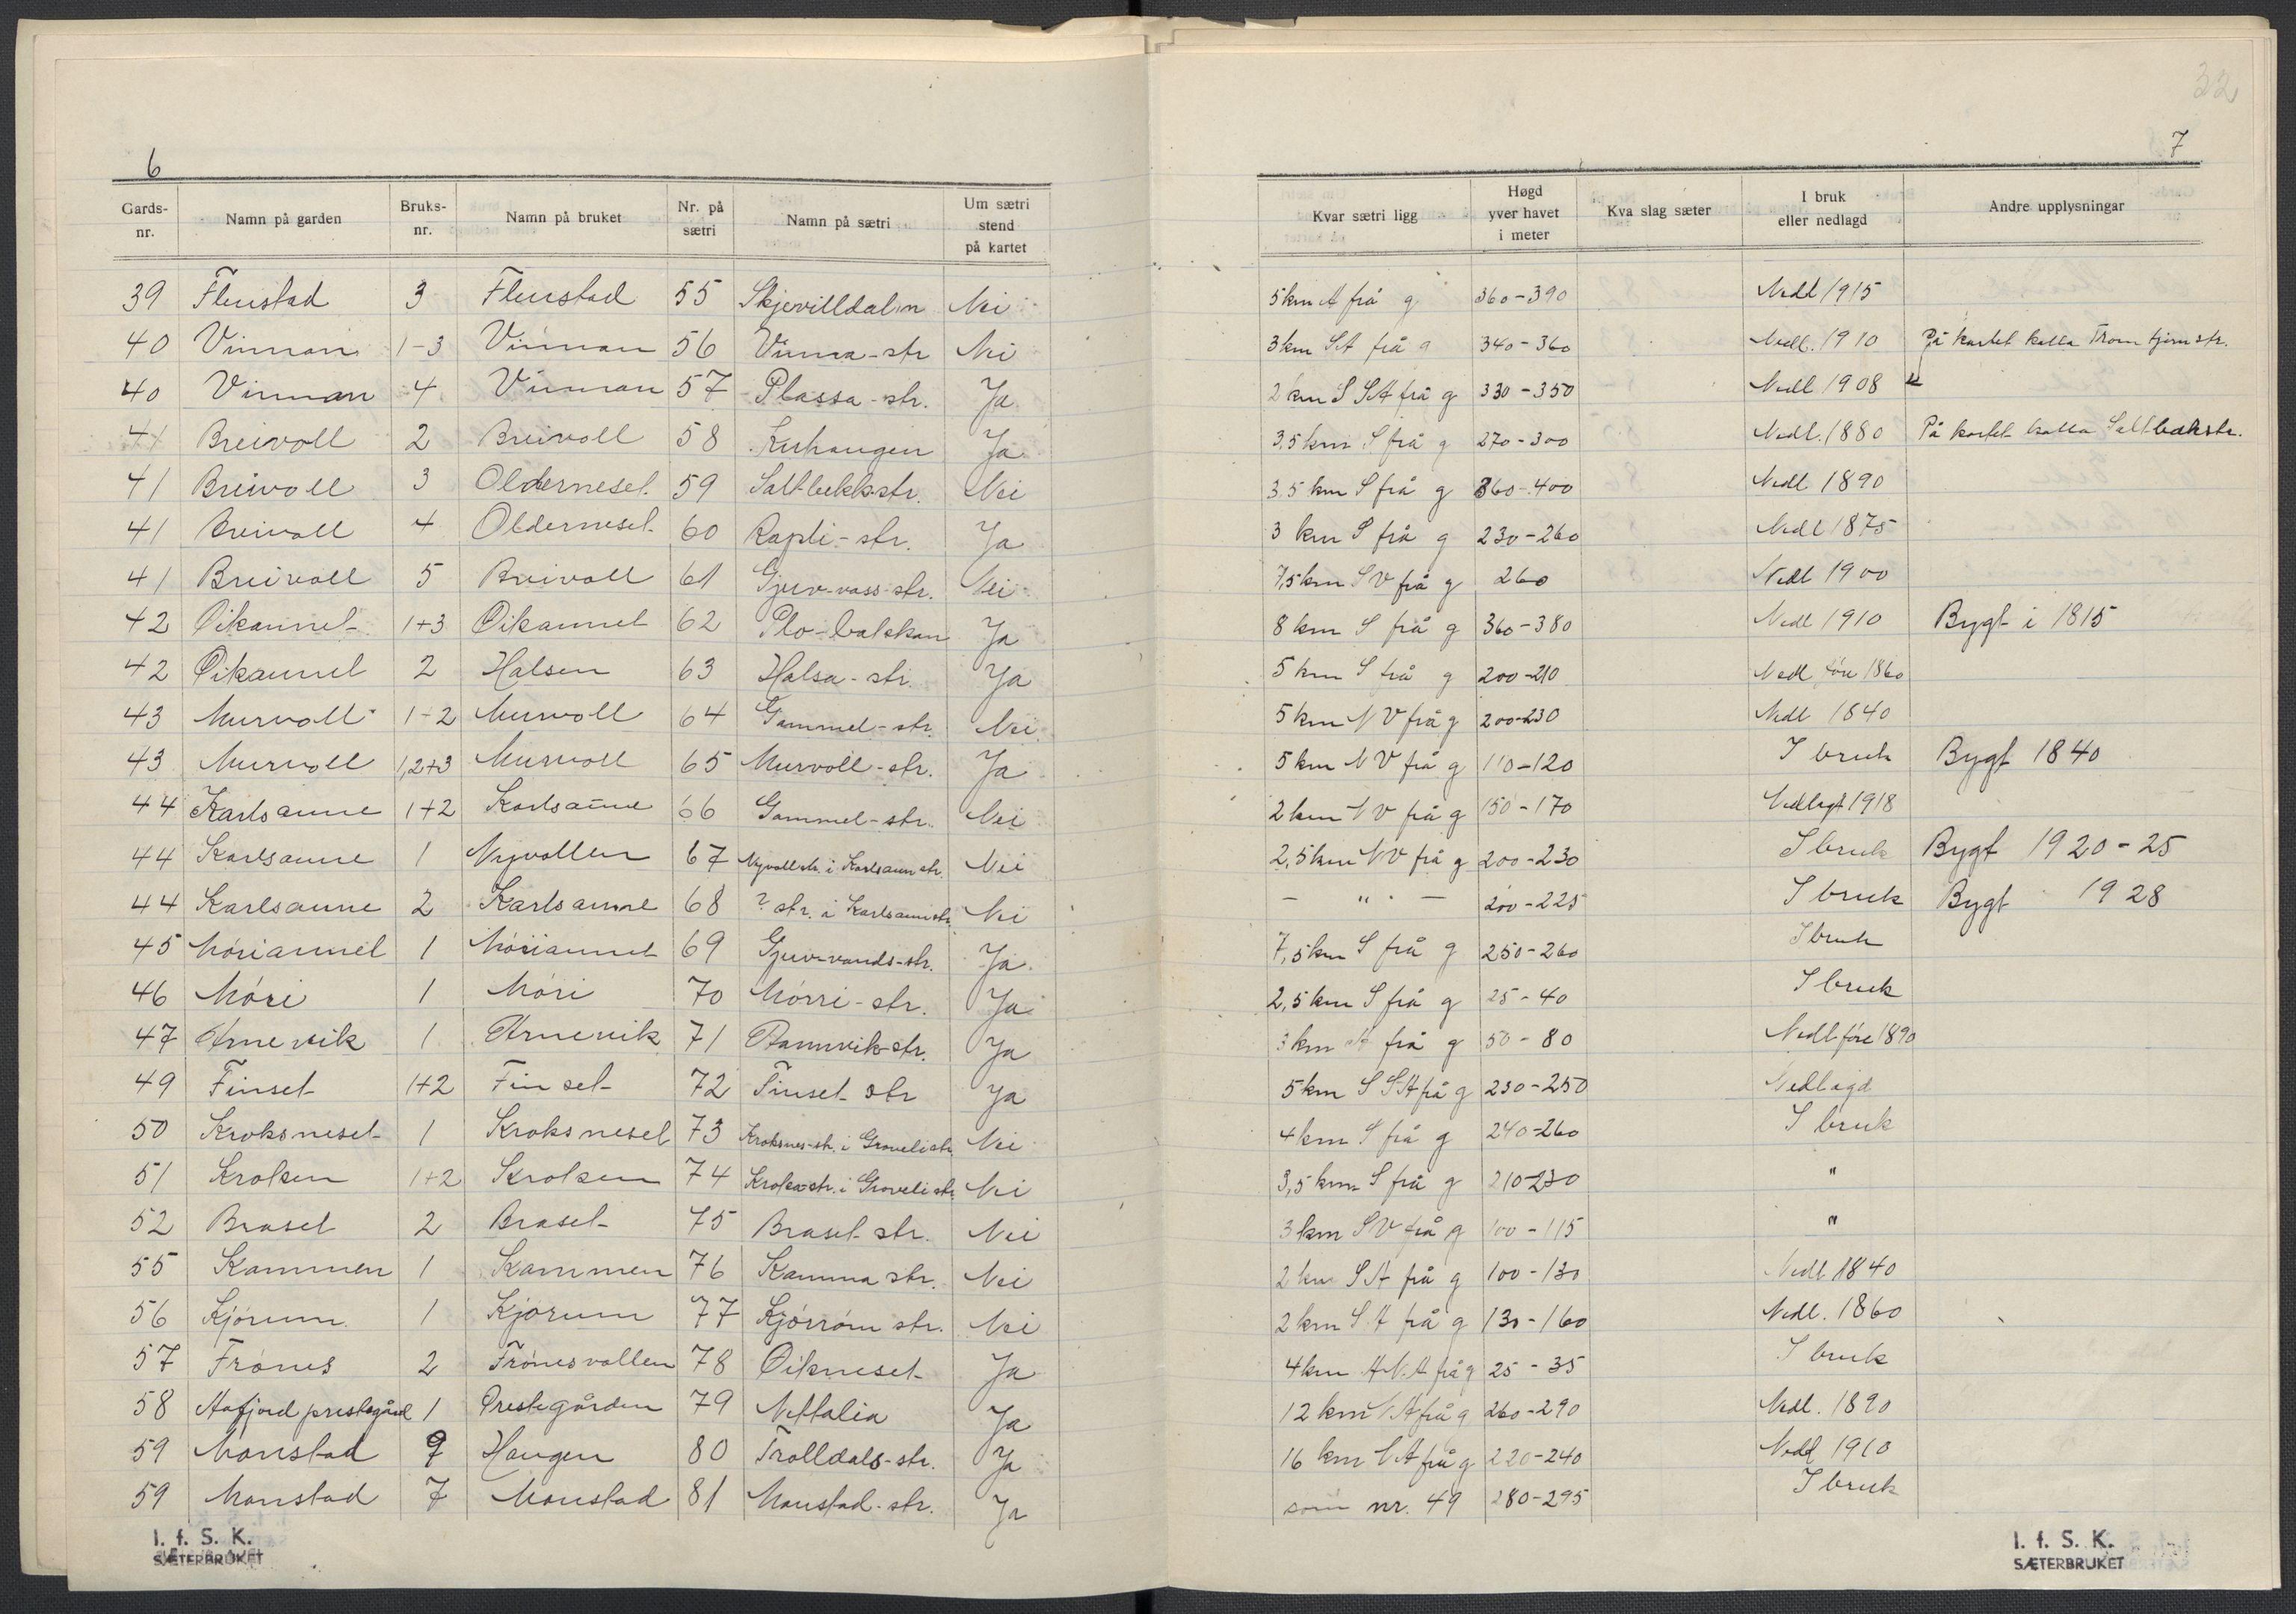 32
6
7
Gards-nr. Namn på garden Bruks-nr. Namn på bruket Nr. på sætri Namn på sætri Um sætri stend på kartet Kvar sætri ligg Høgd yver havet i meter Kva slag sæter I bruk eller nedlagd Andre upplysningar
39 Flenstad 3 Flenstad 55 Skjevilldalin Nei 5 km A frå g 360-390 Nedl 1915
40 Vinnan 1-3 Vinnan 56 Vinna-str Nei 3 km SA frå g 340-360 Nedl. 1910 På kartet kalla Tromtjørnstr.
40 Vinnan 4 Vinnan 57 Plassa-str. Ja 2 km S SA frå g 330-350 Nedl 1908
41 Breivoll 2 Breivoll 58 Kuhaugen Ja 3,5 km S frå g 270-300 Nedl. 1880 På kartet kalla Saltbækstr.
41 Breivoll 3 Olderneset 59 Saltbekkstr. Nei 3.5 km S frå g 360-400 Nedl 1890
41 Breivoll 4 Olderneset 60 Rapli-str. Ja 3 km S frå g 230-260 Nedl 1875
41 Breivoll 5 Breivoll 61 Gjuv-vass-str. Nei 7,5 km SV frå g 260 Nedl 1900
42 Oikaunet 1+3 Oikaunet 62 Plo-bakkan Ja 8 km S frå g 360-380 Nedl 1910 Bygt i 1815
42 Oikaunet 2 Halsen 63 Halsa-str. Ja 5 km S frå g 200-210 Nedl före 1860
43 Murvoll 1-2 Murvoll 64 Gammel-str. Nei 5 km NV frå g 200-230 Nedl 1840
43 Murvoll 1,2+3 Murvoll 65 Murvoll-str. Ja 5 km NV frå g 110-120 I bruk Bygt 1840
44 Karlsaune 1+2 Karlsaune 66 Gammel-str. Nei 2 km NV frå g 150-170 Nedlagt 1918
44 Karlsaune 1 Nyvollen 67 Nyvollstr. i Karlsaunstr. Nei 2,5 km NV frå g 200-230 I bruk Bygt 1920-25
44 Karlsaune 2 Karlsaune 68 ? str. i Karlsaunstr. Nei - " - 200-225 I bruk Bygt 1928
45 Móriaunet 1 Móriaunet 69 Gjuv-vands-str. Ja. 7,5 km S frå g 250-260 I bruk
46 Móri 1 Móri 70 Mórri-str. Ja 2,5 km S frå g 25-40 I bruk
47 Arnevik 1 Arnevik 71 Ramnvik-str. Ja 3 km A frå g 50-80 Nedl före 1890
49 Finset 1+2 Finset 72 Finset str Ja 5 km S SA frå g 230-250 Nedlagd
50 Kroksneset 1 Kroksneset 73 Kroksnes-str. i Grovelistr. Nei 4 km S frå g 240-260 I bruk
51 Kroken 1+2 Kroken 74 Krokastr. i Grovelistr. Nei 3,5 km S frå g 210-230 "
52 Braset 2 Braset 75 Braset str. Nei 3 km SV frå g 100-115 "
55 Kammen 1 Kammen 76 Kamma str. Nei 2 km SA frå g 100-130 Nedl 1840
56 Kjórum 1 Kjorum 77 Kjórróm str. Nei 2 km SA frå g 130-160 Nedl. 1860
57 Frónes 2 Frónesvollen 78 Oikneset Ja 4 km A N.A frå g 25-35 I bruk
58 Aafjord prestegård 1 Prestegården 79 Nettalia Ja 12 km NA frå g 260-290 Nedl. 1890
59 Monstad 9 Haugen 80 Trolldals-str. Ja 16 km NA frå g 220-240 Nedl 1910
59 Monstad 7 Monstad 81 Monstad-str. Ja som nr. 49 280-295 I bruk
I. f. S. K.
SÆTERBRUKET
I. f. S. K.
SÆTERBRUKET